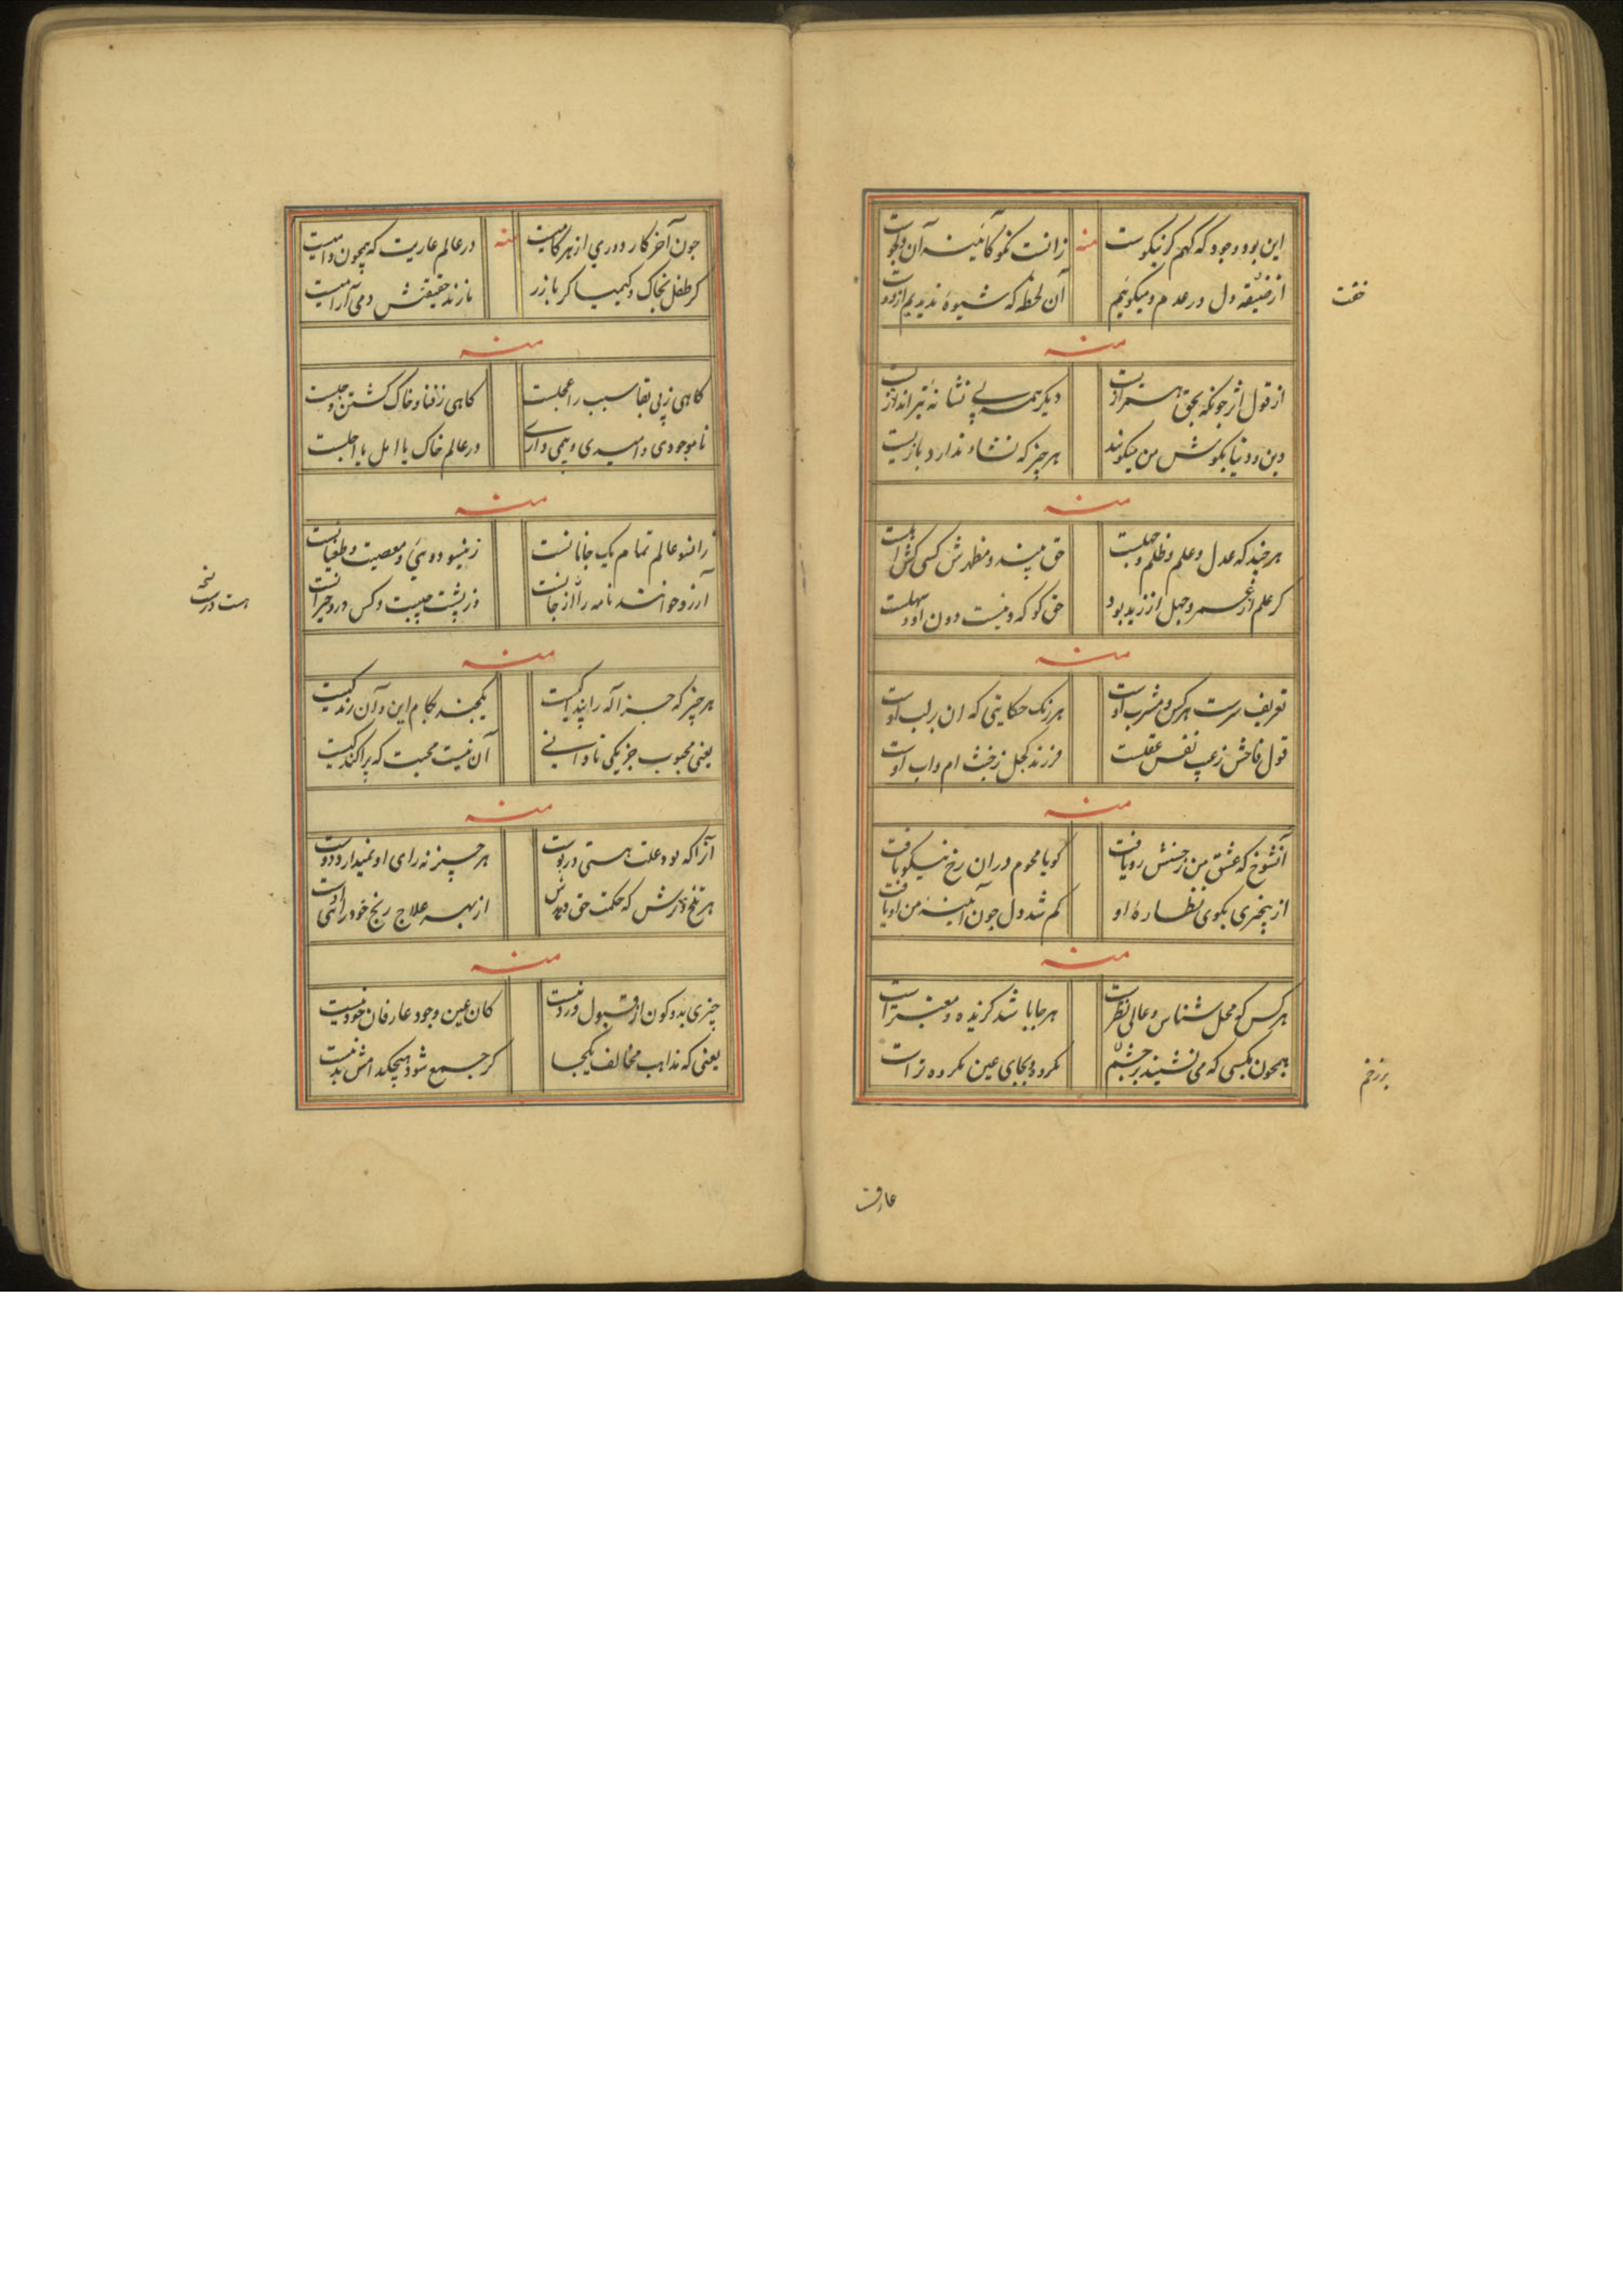 این بود وجود که کهم کر نیکوست منه زانست نمو کائینه آن دلجوست
از ضیقهٔ دل در عدم و میکوئیم آن لحظه که شیوهٔ ندیدیم ازدوست
خفت
منه
از قول اثر جونکه بحق همرازیست دیکر همه بی نشانهٔ تیراندازیست
دین و دنیا بکوش من میکویند هر چیز که نشاء ندارد بازیست
منه
هر چند که عدل و علم و ظلم و جهلست حق بیند و مظهرش کسی کش اهلست
کر علم از عمرو و جهل از زید بود حق کو که و نیست دون او سهلست
منه
تعریف سرست هر کس و مشرب اوست هر رنک حکایتی که ان بر لب اوست
قول فاحش زعیب نفس عقلست فرزند کجل زخبث ام و اب اوست
منه
آنشوخ که عشق من زحسنش رو یافت کویا محوم در ان رخ نیکو یافت
از بیخبری بکوی نظارهٔ او کم شد دل جون آئینهٔ من او یافت
منه
هر کس کو محل شناس و عالی نظرست هر جا باشد کزیده و معتبر است
همچون مکسی که می نشیند بر چشم مکروه بجای عین مکروه تر است
بر زخم
عارفت
جون آخر کار دوری از هر کامیست منه در عالم عاریت که همچون دامیست
کر طفل بخاک و کیمیا کر با زر بازند حقیقتش دمی آرامیست
منه
کاهی زپی بقا سبب را عجلست کاهی زفنا و خاک کشتن وجلست
نا موجودی و امیدی و بیمی داری در عالم خاک یا امل یا اجلست
منه
زانسو عالم تمام یک جانانست زینسو دوئی و معصیت و طغیانست
آنرو خوانند نامه را از جانست وز پشت چپست و کس درو حیرانست
نسخه
هست درست
منه
هر چیز که جز اله را پایندکیست یکچند بکام این و آن زندکیست
یعنی محبوب جز یکی نا دانی آن نیست محبت که پراکندکیست
منه
آنرا که بود علت هستی در پوست هر چیز نه رای او نمیدارد دوست
هر تلخ و ترش که حکمت حق دیدش از بهر علاج رنج خود راییٔ اوست
منه
چیزی بدو کون از قبول و رد نیست کان عین وجود عارفان خود نیست
یعنی که مذاهب مخالف یکجا کر جمع شود هیچکدامش بد نیست